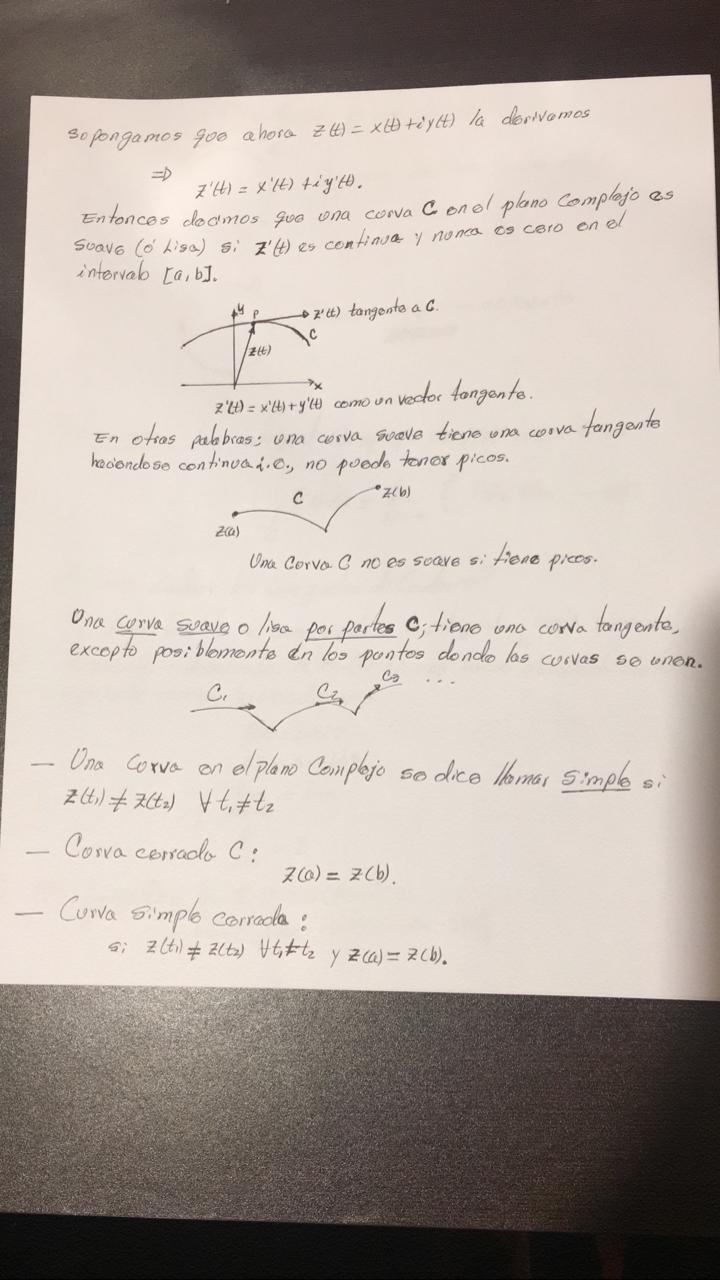 Supongamos que ahora z(t) = x(t)+iy(t) la derivamos
⇒ z'(t) = x'(t) + i y'(t).
Entonces decimos que una curva C en el plano Complejo es
suave (ó Lisa) si z'(t) es continua y nunca es cero en el
intervalo [a,b].
y P z'(t) tangente a C.
C
z(t)
x
z'(t) = x'(t)+y'(t) como un vector tangente.
En otras palabras: una curva suave tiene una curva tangente
haciendose continua i.e., no puede tener picos.
C z(b)
z(a)
Una Curva C no es suave si tiene picos.
Una curva suave o lisa por partes C; tiene una curva tangente,
excepto posiblemente en los puntos donde las curvas se unen.
C₁ C₂ C₃ ...
— Una Curva en el plano Complejo se dice llamar simple si
z(t₁) ≠ z(t₂) ∀ t₁≠t₂
— Curva cerrada C:
z(a) = z(b).
— Curva simple cerrada:
si z(t₁) ≠ z(t₂) ∀t₁≠t₂ y z(a) = z(b).